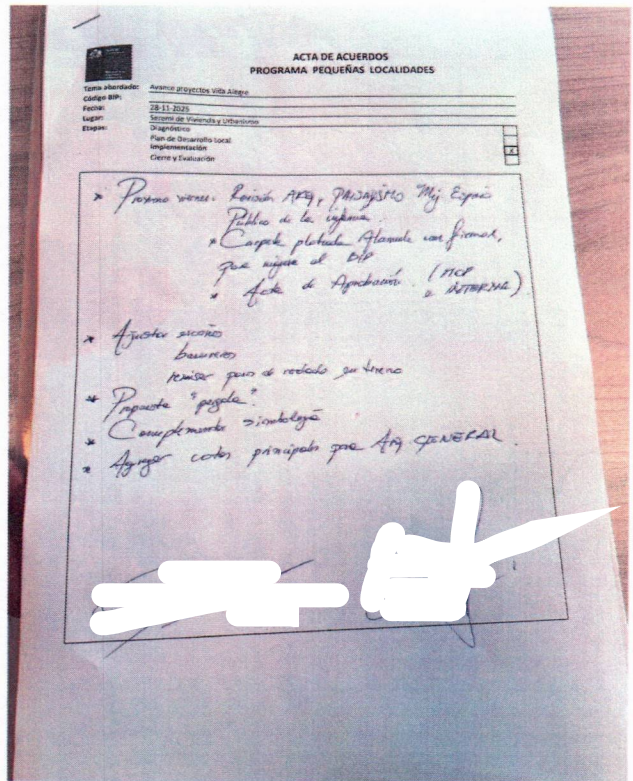 ACTA DE ACUERDOS
PROGRAMA PEQUEÑAS LOCALIDADES
Tema abordado: Avance proyectos Villa Alegre
Código BIP:
Fecha: 28-11-2025
Lugar: Seremi de Vivienda y Urbanismo
Etapas: Diagnóstico
Plan de Desarrollo Local
Implementación X
Cierre y Evaluación
* Próximo viernes: Revisión ARQ, PAISAJISMO Mej Espacio
Público de la
* Carpeta Alameda con firmas,
que al BIP
* Acta de Aprobación. (MCP
e INTERNA)
* Ajustar escaños
basureros
revisar paso de en terreno
* Propuesta "pergola".
* Complementar simbología
* Agregar cotas principales para ARQ GENERAL.